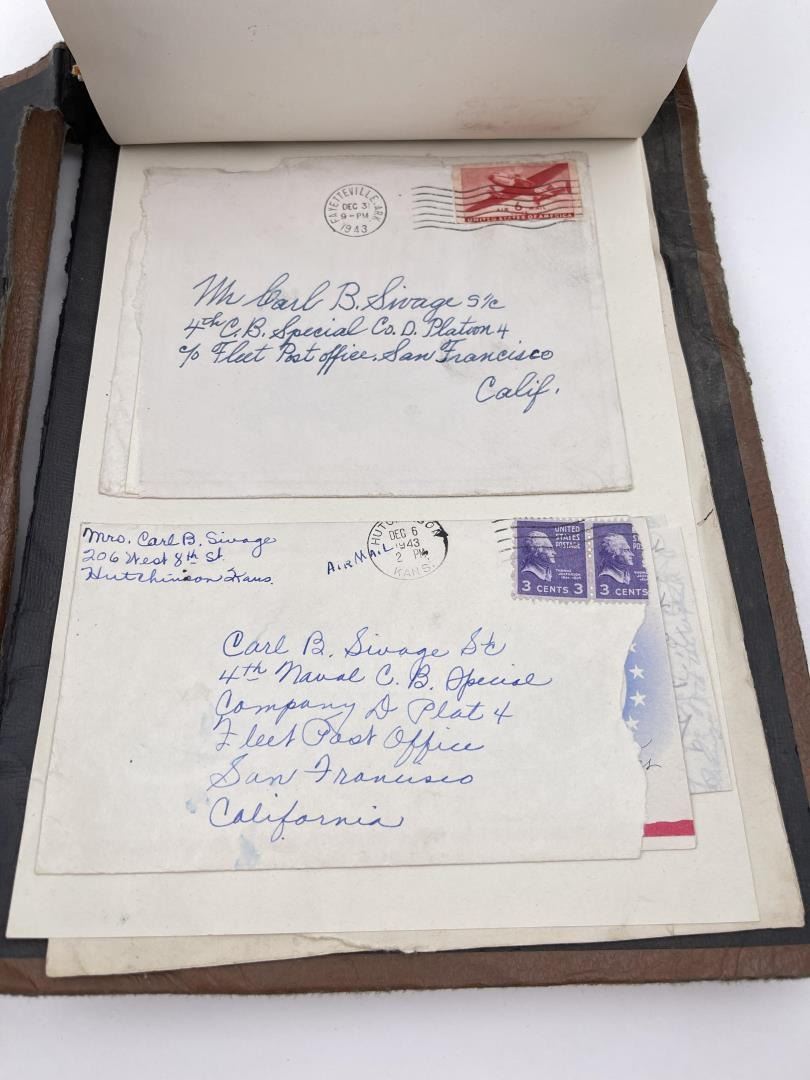 FAYETTEVILLE, ARK.
DEC 31
9-PM
1943
AIR 6 MAIL
UNITED STATES OF AMERICA
Mr Carl B. Sivage S/c
4th C. B. Special Co. D. Platon 4
c/o Fleet Post office, San Francisco
Calif.
Mrs. Carl B. Sivage
206 West 8th St.
Hutchinson Kans.
AIR MAIL
HUTCHINSON
DEC 6
1943
2 PM
KANS.
UNITED
STATES
POSTAGE
THOMAS
JEFFERSON
3 CENTS 3
UNITED
STATES
POSTAGE
3 CENTS
Carl B. Sivage S/c
4th Naval C. B. Special
Company D Plat 4
Fleet Post Office
San Francisco
California